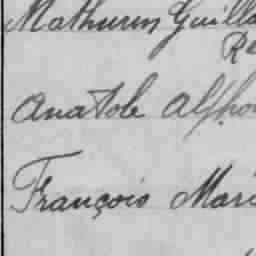 Mathurin Guilla
Re
Anatole Alpho
François Mari